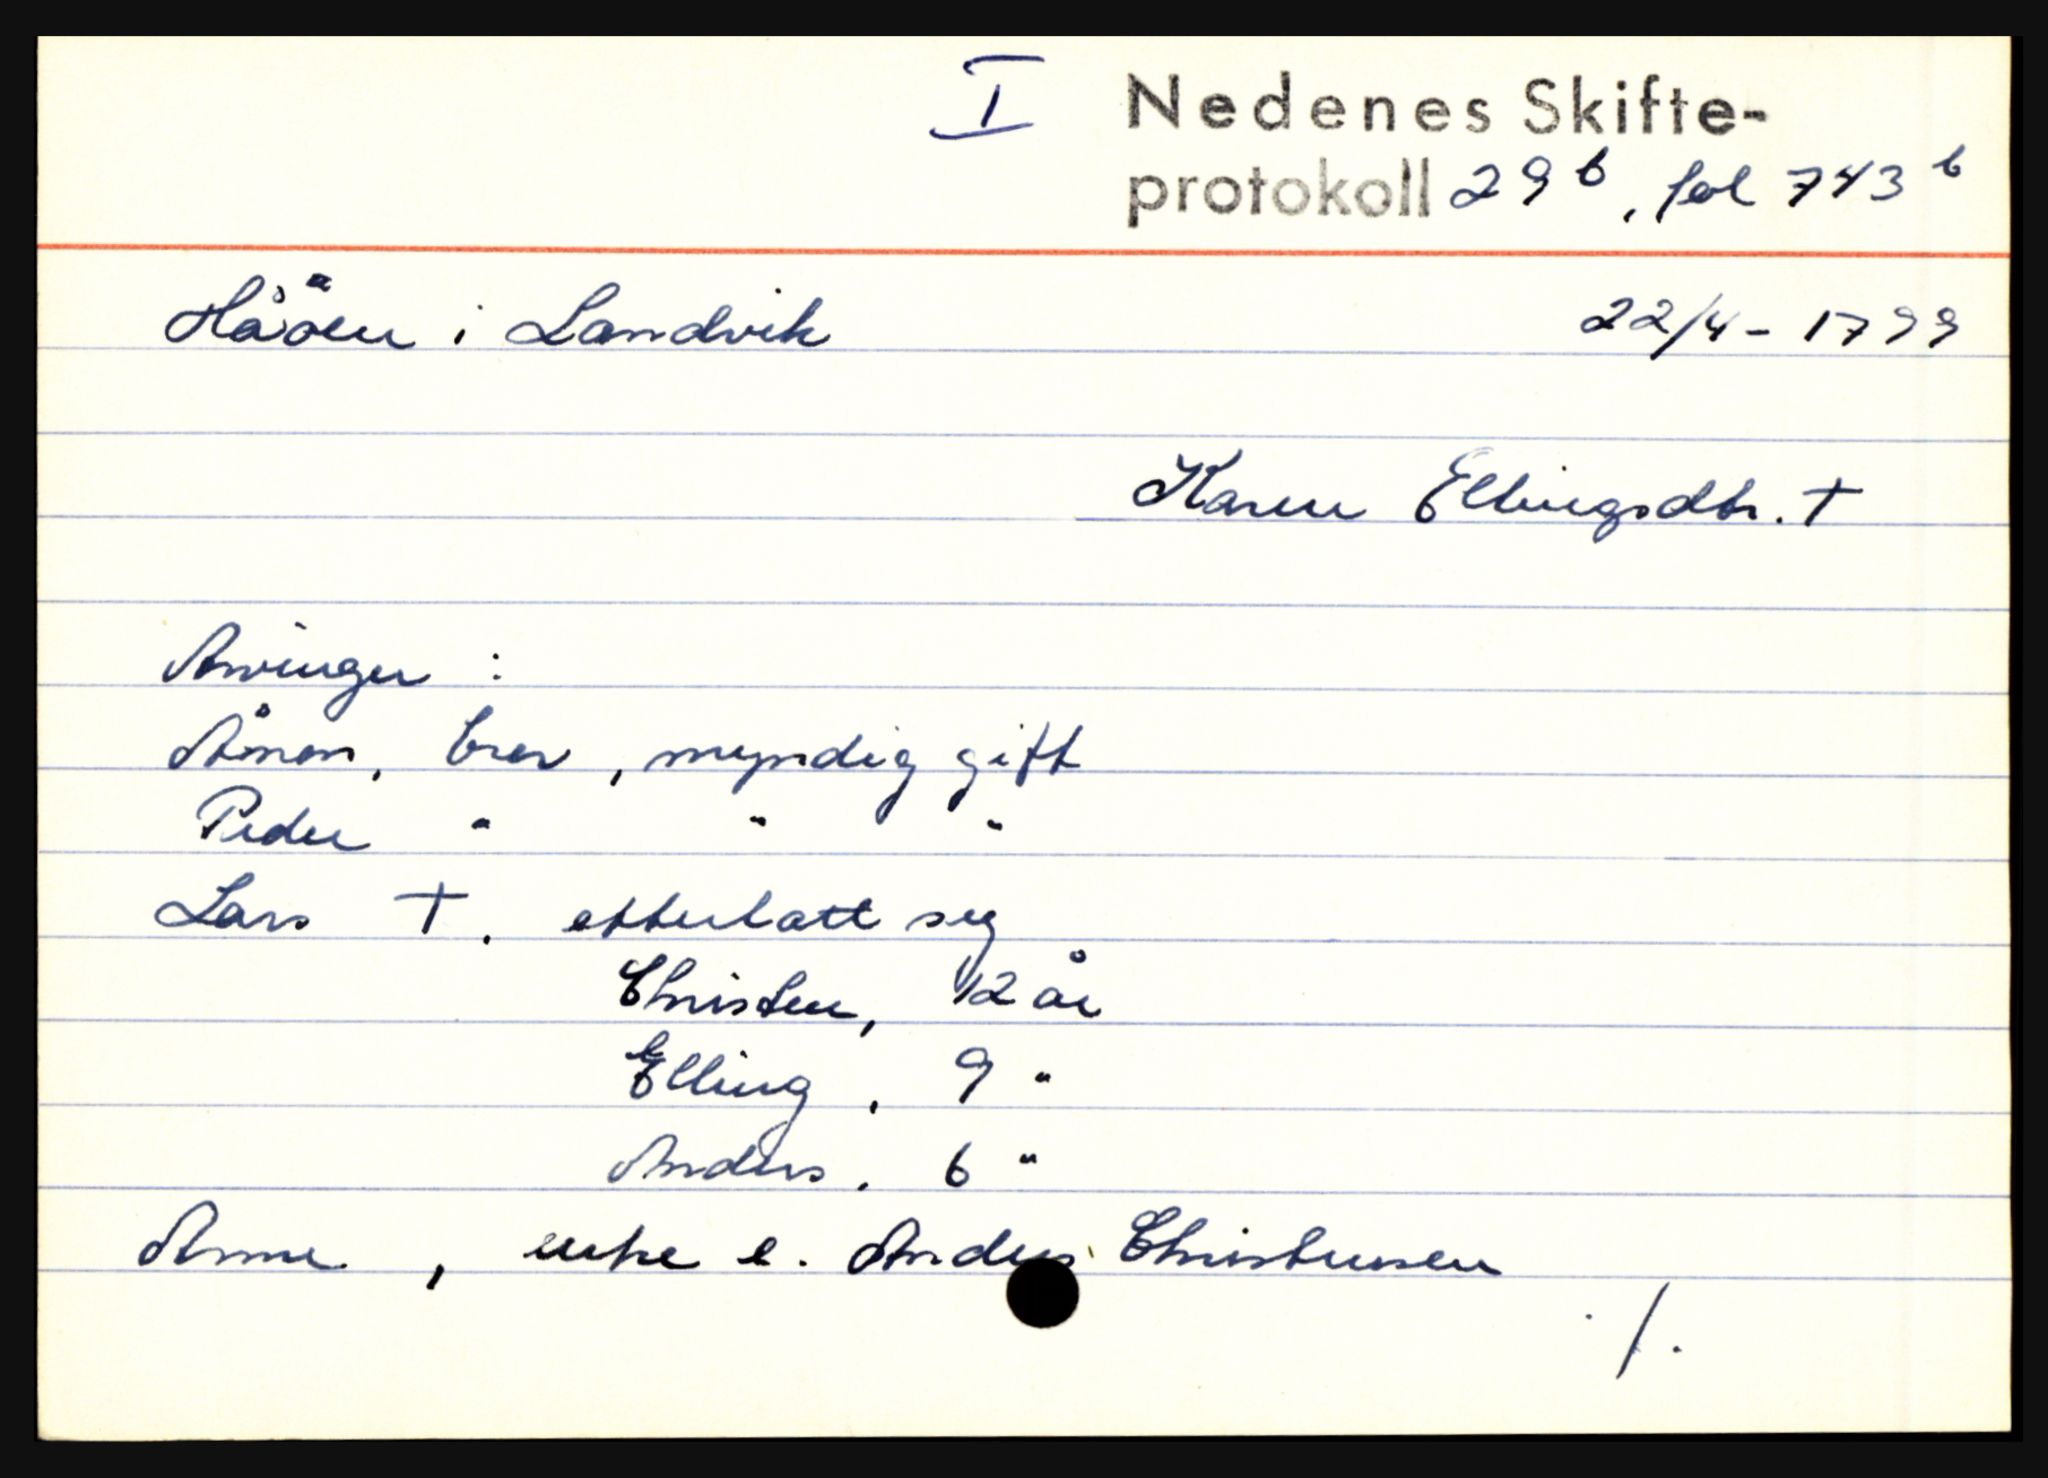 I Nedenes Skifte-
protokoll 29b, fol 743b
Håöen i Landvik 22/4 - 1799
Karen Ellingsdtr. †
Arvinger :
Åmon, bror, myndig gift
Peder " " "
Lars †, etterlatt seg
Christen, 12 år
Elling, 9 "
Anders, 6 "
Anne, enke e. Anders Christensen
./.